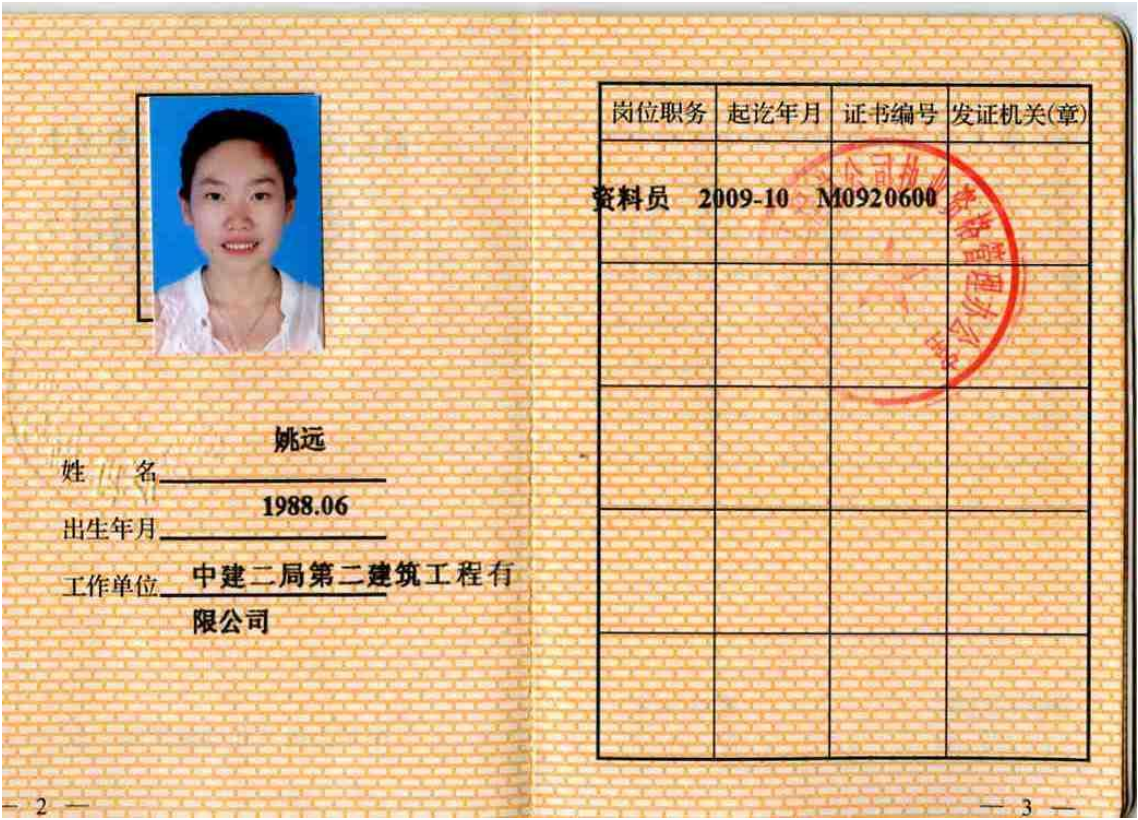 姓 名 姚远
出生年月 1988.06
工作单位 中建二局第二建筑工程有
限公司
— 2 —
岗位职务 起讫年月 证书编号 发证机关(章)
资料员 2009-10 M0920600
公司执业资格管理办公室
— 3 —